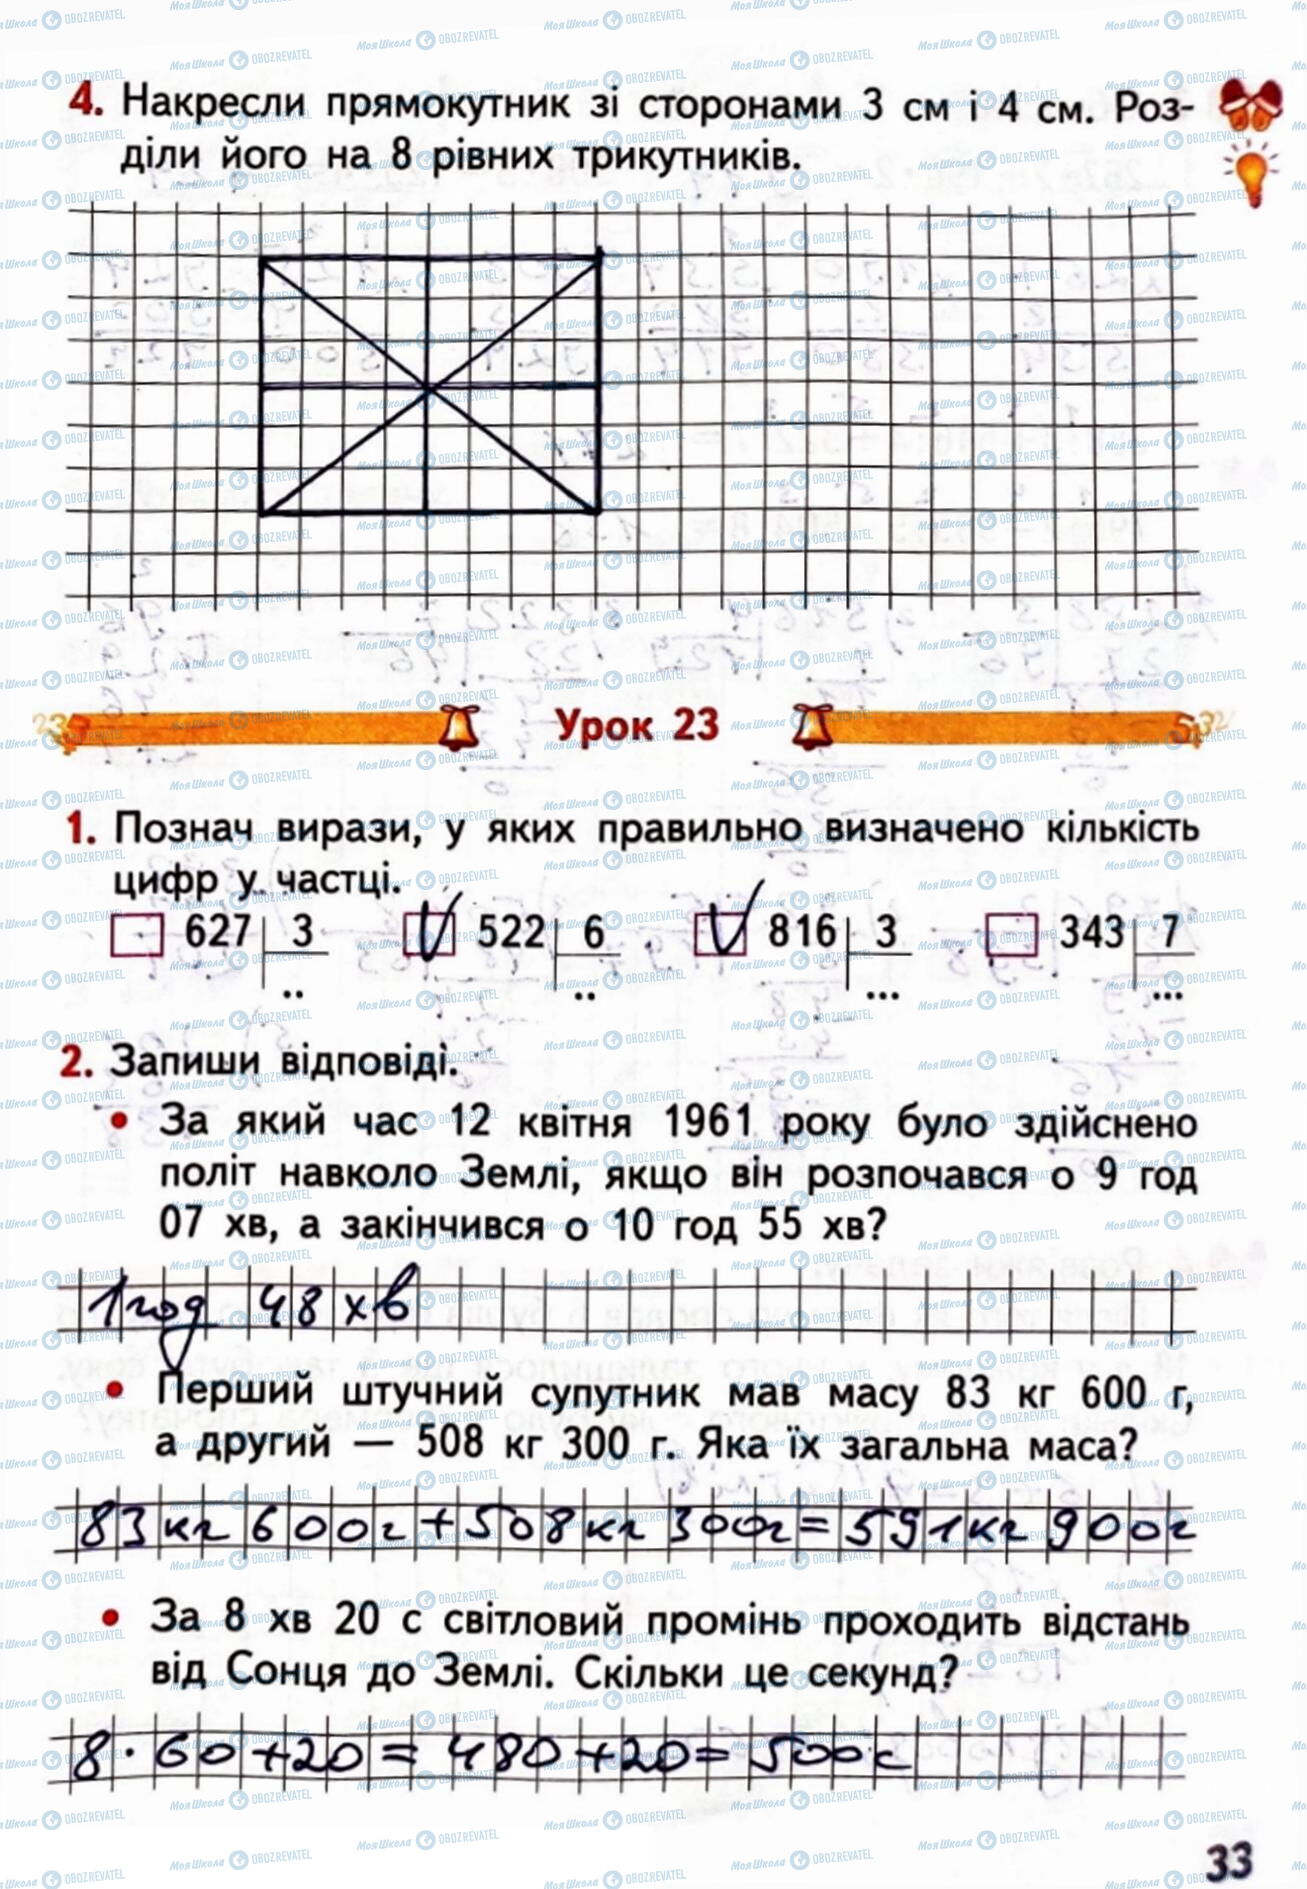 4. Накресли прямокутник зі сторонами 3 см і 4 см. Роз-
діли його на 8 рівних трикутників.
Урок 23
1. Познач вирази, у яких правильно визначено кількість
цифр у частці.
627 3 522 6 816 3 343 7
.. .. ... ...
2. Запиши відповіді.
• За який час 12 квітня 1961 року було здійснено
політ навколо Землі, якщо він розпочався о 9 год
07 хв, а закінчився о 10 год 55 хв?
1 год 48 хв
• Перший штучний супутник мав масу 83 кг 600 г,
а другий — 508 кг 300 г. Яка їх загальна маса?
83 кг 600 г + 508 кг 300 г = 591 кг 900 г
• За 8 хв 20 с світловий промінь проходить відстань
від Сонця до Землі. Скільки це секунд?
8 · 60 + 20 = 480 + 20 = 500 с
33
МояШкола OBOZREVATEL